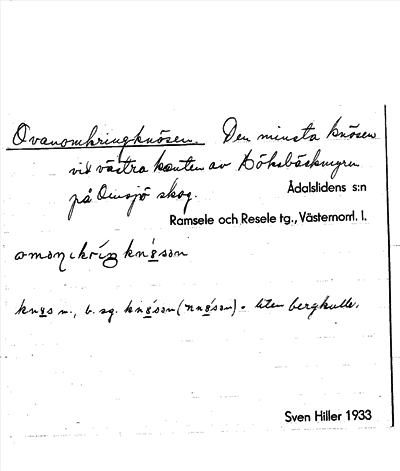 Ovanomkringknösen. Den minsta knösen
vid västra kanten av Böksbäckmyrn
på Omsjö skog.
Ådalslidens s:n
Ramsele och Resele tg., Västernorrl. l.
knøs m., b. sg. knø̀sən (nnø̀sən) - liten bergkulle.
Sven Hiller 1933